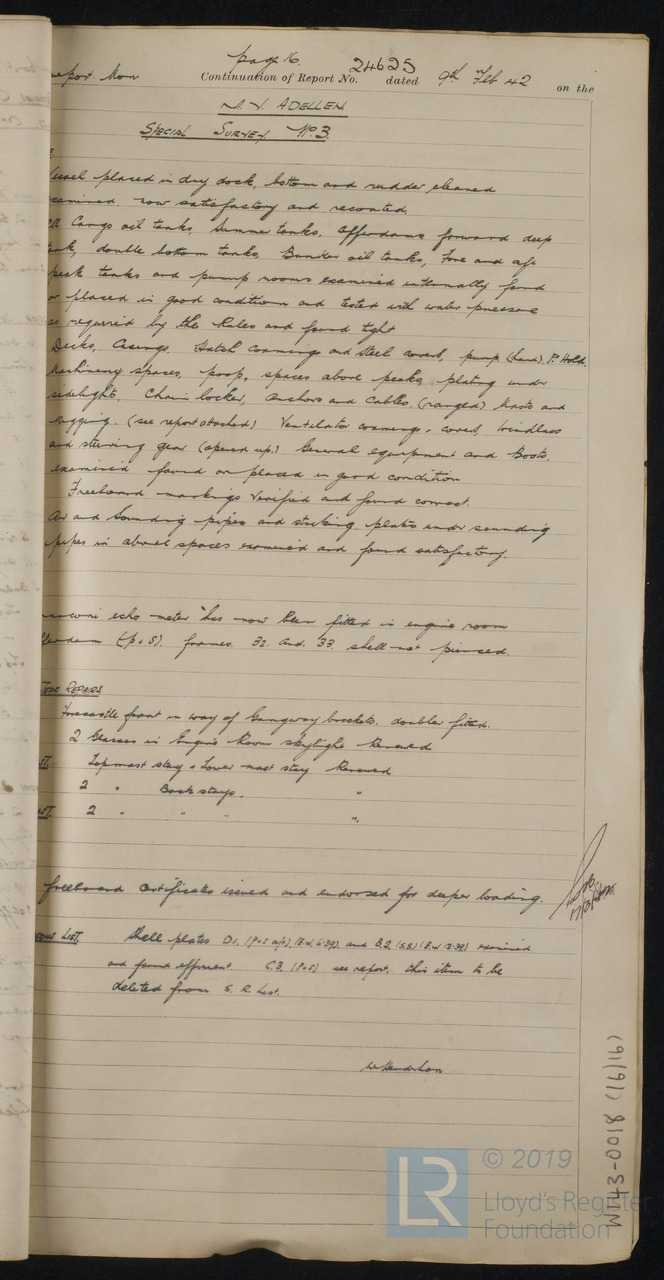 page 16.
eport. Mon Continuation of Report No. 24625 dated 9th Feb 42 on the
M.V. ADELLEN
SPECIAL SURVEY No 3.
essel placed in dry dock, bottom and rudder cleaned
examined now satisfactory and recoated.
Cargo oil tanks, Summer tanks, Cofferdams forward deep
tank, double bottom tanks, Bunker oil tanks, Fore and aft
peak tanks and pump rooms examined internally found
or placed in good condition and tested with water pressure
as required by the Rules and found tight
Decks, Casings, Hatch coamings and steel covers, pump (hand), F. Hold,
Machinery spaces, poop, spaces above peaks, plating under
sidelights, Chain locker, anchors and cables (ranged) Masts and
rigging. (see report attached) Ventilator coamings & covers, windlass
and steering gear (opened up.) General equipment and Boats,
examined found or placed in good condition
Freeboard markings verified and found correct.
Air and Sounding pipes and striking plates under sounding
pipes in above spaces examined and found satisfactory.
echo meter has now been fitted in engine room
(p & s). frames 32 and 33 shell not pierced.
REPAIRS
Forecastle front in way of Gangway brackets. doubler fitted.
2 Glasses in Engine Room skylight Renewed
Topmast stay & Lower mast stay Renewed
2 " Back stays. "
2 " " " "
freeboard Certificates issued and endorsed for deeper loading.
17/3/42
LIST. Shell plates D1. (P&S aft), (E.W. 6.39), and B.2 (S.S) (E.W. 2.39) examined
and found efficient. C.3. (P&S) see report, this item to be
deleted from S. R. List.
W Henderson
W143-0018 (16/16)
LR
© 2019
Lloyd's Register
Foundation